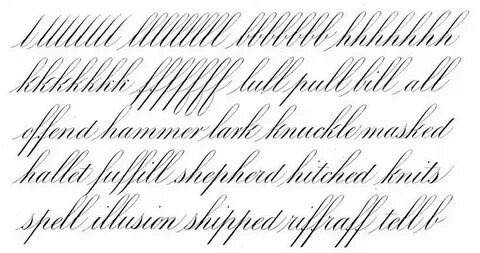 l lllllllll lllllllll bbbbbbb hhhhhhh
kkkkkkk fffffff lull pull bill all
offend hammer lark knuckle masked
hallet fulfill shepherd hitched knits
spell illusion shipped riffraff tell b